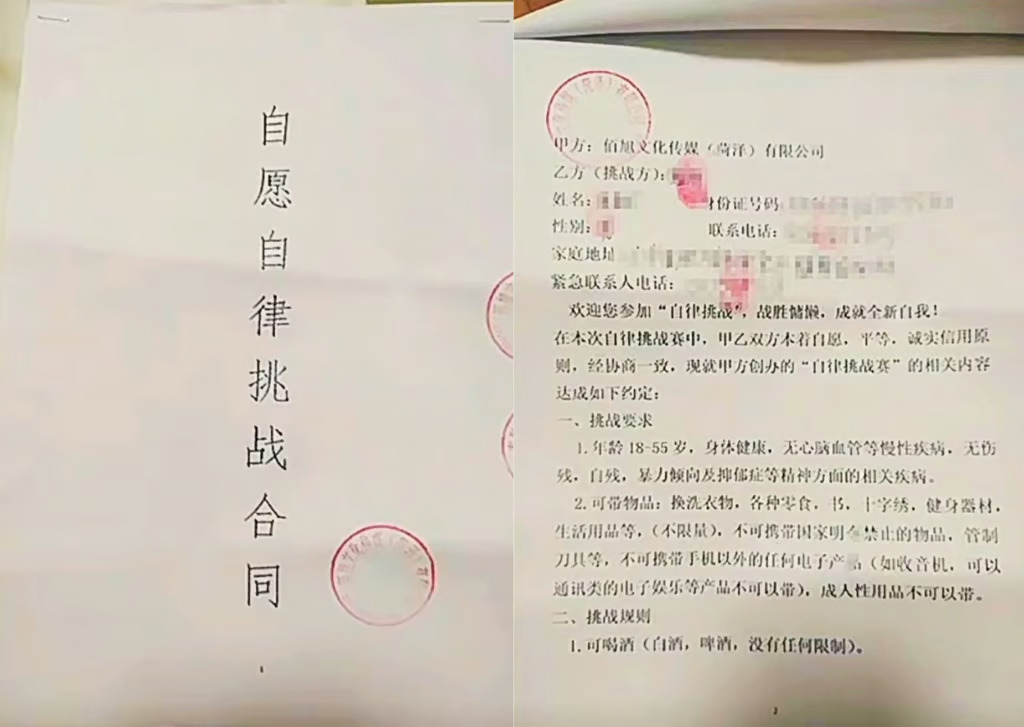 自愿自律挑战合同
甲方：佰旭文化传媒（菏泽）有限公司
乙方（挑战方）：
姓名：
身份证号码：
性别：
联系电话：
家庭地址
紧急联系人电话：
欢迎您参加“自律挑战”，战胜慵懒，成就全新自我！
在本次自律挑战赛中，甲乙双方本着自愿，平等，诚实信用原
则，经协商一致，现就甲方创办的“自律挑战赛”的相关内容
达成如下约定：
一、挑战要求
1.年龄18-55岁，身体健康，无心脑血管等慢性疾病，无伤
残，自残，暴力倾向及抑郁症等精神方面的相关疾病。
2.可带物品：换洗衣物，各种零食，书，十字绣，健身器材，
生活用品等，（不限量），不可携带国家明令禁止的物品，管制
刀具等，不可携带手机以外的任何电子产品（如收音机，可以
通讯类的电子娱乐等产品不可以带），成人性用品不可以带。
二、挑战规则
1.可喝酒（白酒，啤酒，没有任何限制）。